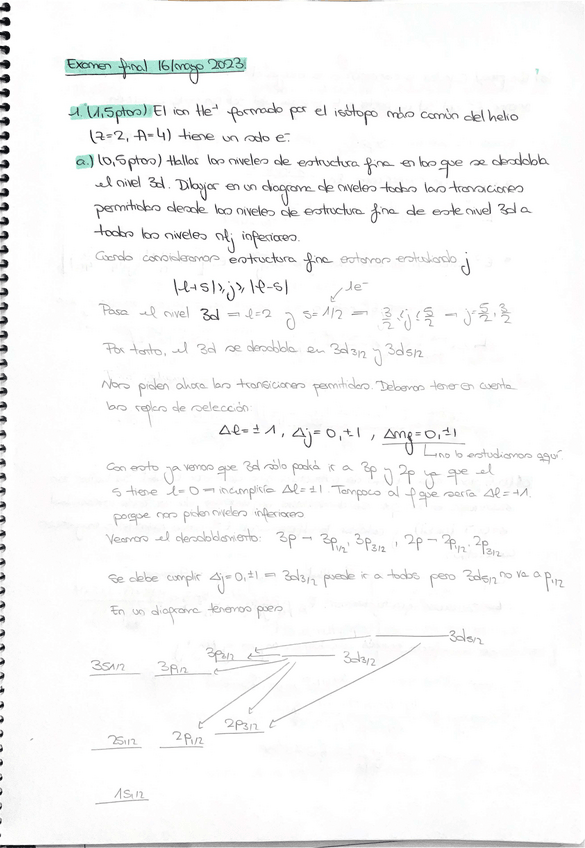 Examen final 16/mayo 2023
1. (1,5ptos) El ion He⁺ formado por el isótopo más común del helio
(Z=2, A=4) tiene un solo e⁻.
a.) (0,5ptos) Hallar los niveles de estructura fina en los que se desdobla
el nivel 3d. Dibujar en un diagrama de niveles todas las transiciones
permitidas desde los niveles de estructura fina de este nivel 3d a
todos los niveles nlj inferiores.
Cuando consideramos estructura fina estamos estudiando j
|l+s| ≥ j ≥ |l-s|
1e⁻
Para el nivel 3d → l=2 y s=1/2 → 3/2 ≤ j ≤ 5/2 → j=5/2, 3/2
Por tanto, el 3d se desdobla en 3d3/2 y 3d5/2
Nos piden ahora las transiciones permitidas. Debemos tener en cuenta
las reglas de selección
Δl=±1, Δj=0,±1, Δmj=0,±1
no lo estudiamos aquí
Con esto ya vemos que 3d sólo podrá ir a 3p y 2p ya que el
s tiene l=0 → incumpliría Δl=±1. Tampoco al f que sería Δl=+1.
porque nos piden niveles inferiores
Veamos el desdoblamiento: 3p → 3p1/2, 3p3/2, 2p → 2p1/2, 2p3/2
Se debe cumplir Δj=0,±1 → 3d3/2 puede ir a todos pero 3d5/2 no va a p1/2
En un diagrama tenemos pues
3d5/2
3s1/2 3p1/2 3p3/2 3d3/2
2s1/2 2p1/2 2p3/2
1s1/2